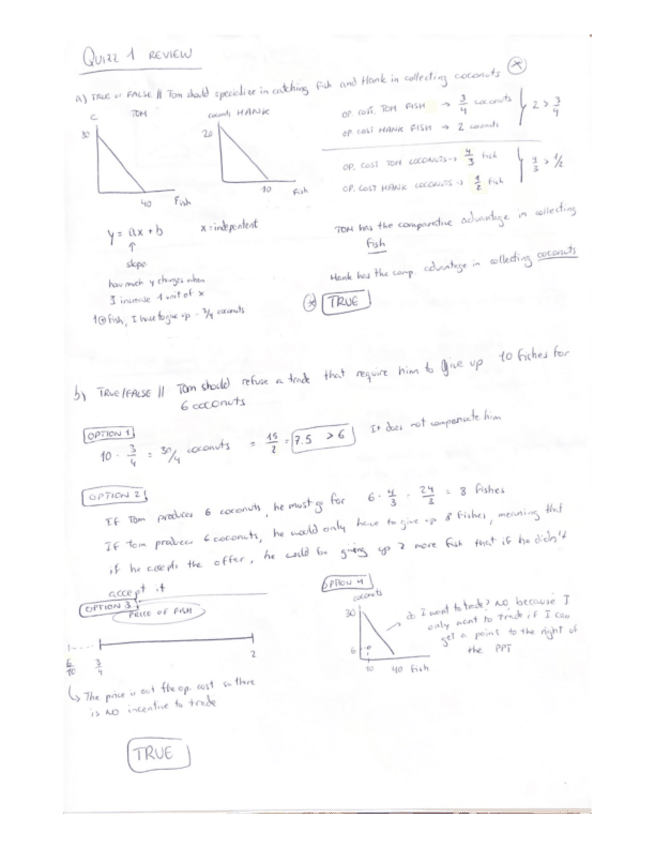 QUIZZ 1 REVIEW
a) TRUE or FALSE // Tom should specialize in catching fish and Hank in collecting coconuts *
C TOM
30
40 Fish
coconuts HANK
20
10 Fish
OP. COST. TOM FISH → 3/4 coconuts
OP. COST HANK FISH → 2 coconuts
2 > 3/4
OP. COST TOM COCONUTS → 4/3 fish
OP. COST HANK COCONUTS → 1/2 fish
4/3 > 1/2
y = ax + b x = independent
↑
slope
how much y changes when
I increase 1 unit of x
1 fish, I have to give up - 3/4 coconuts
TOM has the comparative advantage in collecting
Fish
Hank has the comp. advantage in collecting coconuts
* TRUE
b) TRUE/FALSE // Tom should refuse a trade that require him to give up 10 fiches for
6 coconuts
OPTION 1
10 · 3/4 = 30/4 coconuts = 15/2 = 7.5 > 6 It does not compensate him
OPTION 2
IF Tom produces 6 coconuts, he must go for 6 · 4/3 = 24/3 = 8 fishes
IF tom produces 6 coconuts, he would only have to give up 8 fishes, meaning that
if he accepts the offer, he would be giving up 2 more fish that if he didn't
accept it
OPTION 3
PRICE OF FISH
6/10 3/4 2
↳ The price is out the op. cost so there
is NO incentive to trade
OPTION 4
coconuts
30
6
10 40 Fish
do I want to trade? NO, because I
only want to trade if I can
get a point to the right of
the PPT
TRUE